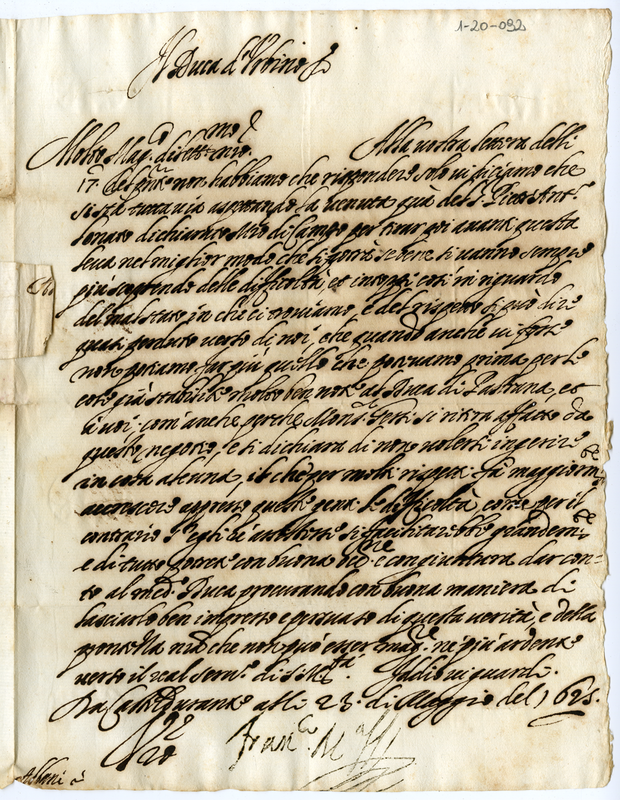 1-20-092
Il Duca d'Urbino
Molto Mag.co dilett.mo nro. Alla vostra lettera delli
17 del pnte non habbiamo che rispondere solo vi diciamo che
si stà tuttavia aspettando la venuta quà del S. Pietro Ant.o
Lonato dichiarato Mro di Campo per tirar poi avanti questa
leva nel miglior modo che si potrà se bene si vanno sempre
più scoprendo delle difficoltà, et intoppi così in riguardo
del mal stato in che ci troviamo, e del rispetto si può dire
quasi perduto verso di noi, che quando anche vi fosse
non potiamo far più quello che potevamo prima per le
cose già stabilite molto ben note al Duca di Pastrana, et
à voi, com'anche perche Mons.r si ritira affatto da
questo negotio, e si dichiara di non volersi ingerire
in cosa alcuna, il che per molti rispetti fà maggiorm.te
accrescere appresso queste genti le difficoltà, come per il
contrario s'egli le faciliterebbe grandem.te
e di tutto potrete con buona occ.ne e congiuntura dar con=
to al med.o Duca procurando con buona maniera di
lasciarlo ben impresso e persuaso di questa verità, e della
prontezza nra che non può esser magg.re ne più ardente
verso il real serv.o di S. M.tà Iddio vi guardi.
Da Casteldurante alli 23 di Maggio del 1625.
Franc.o M.